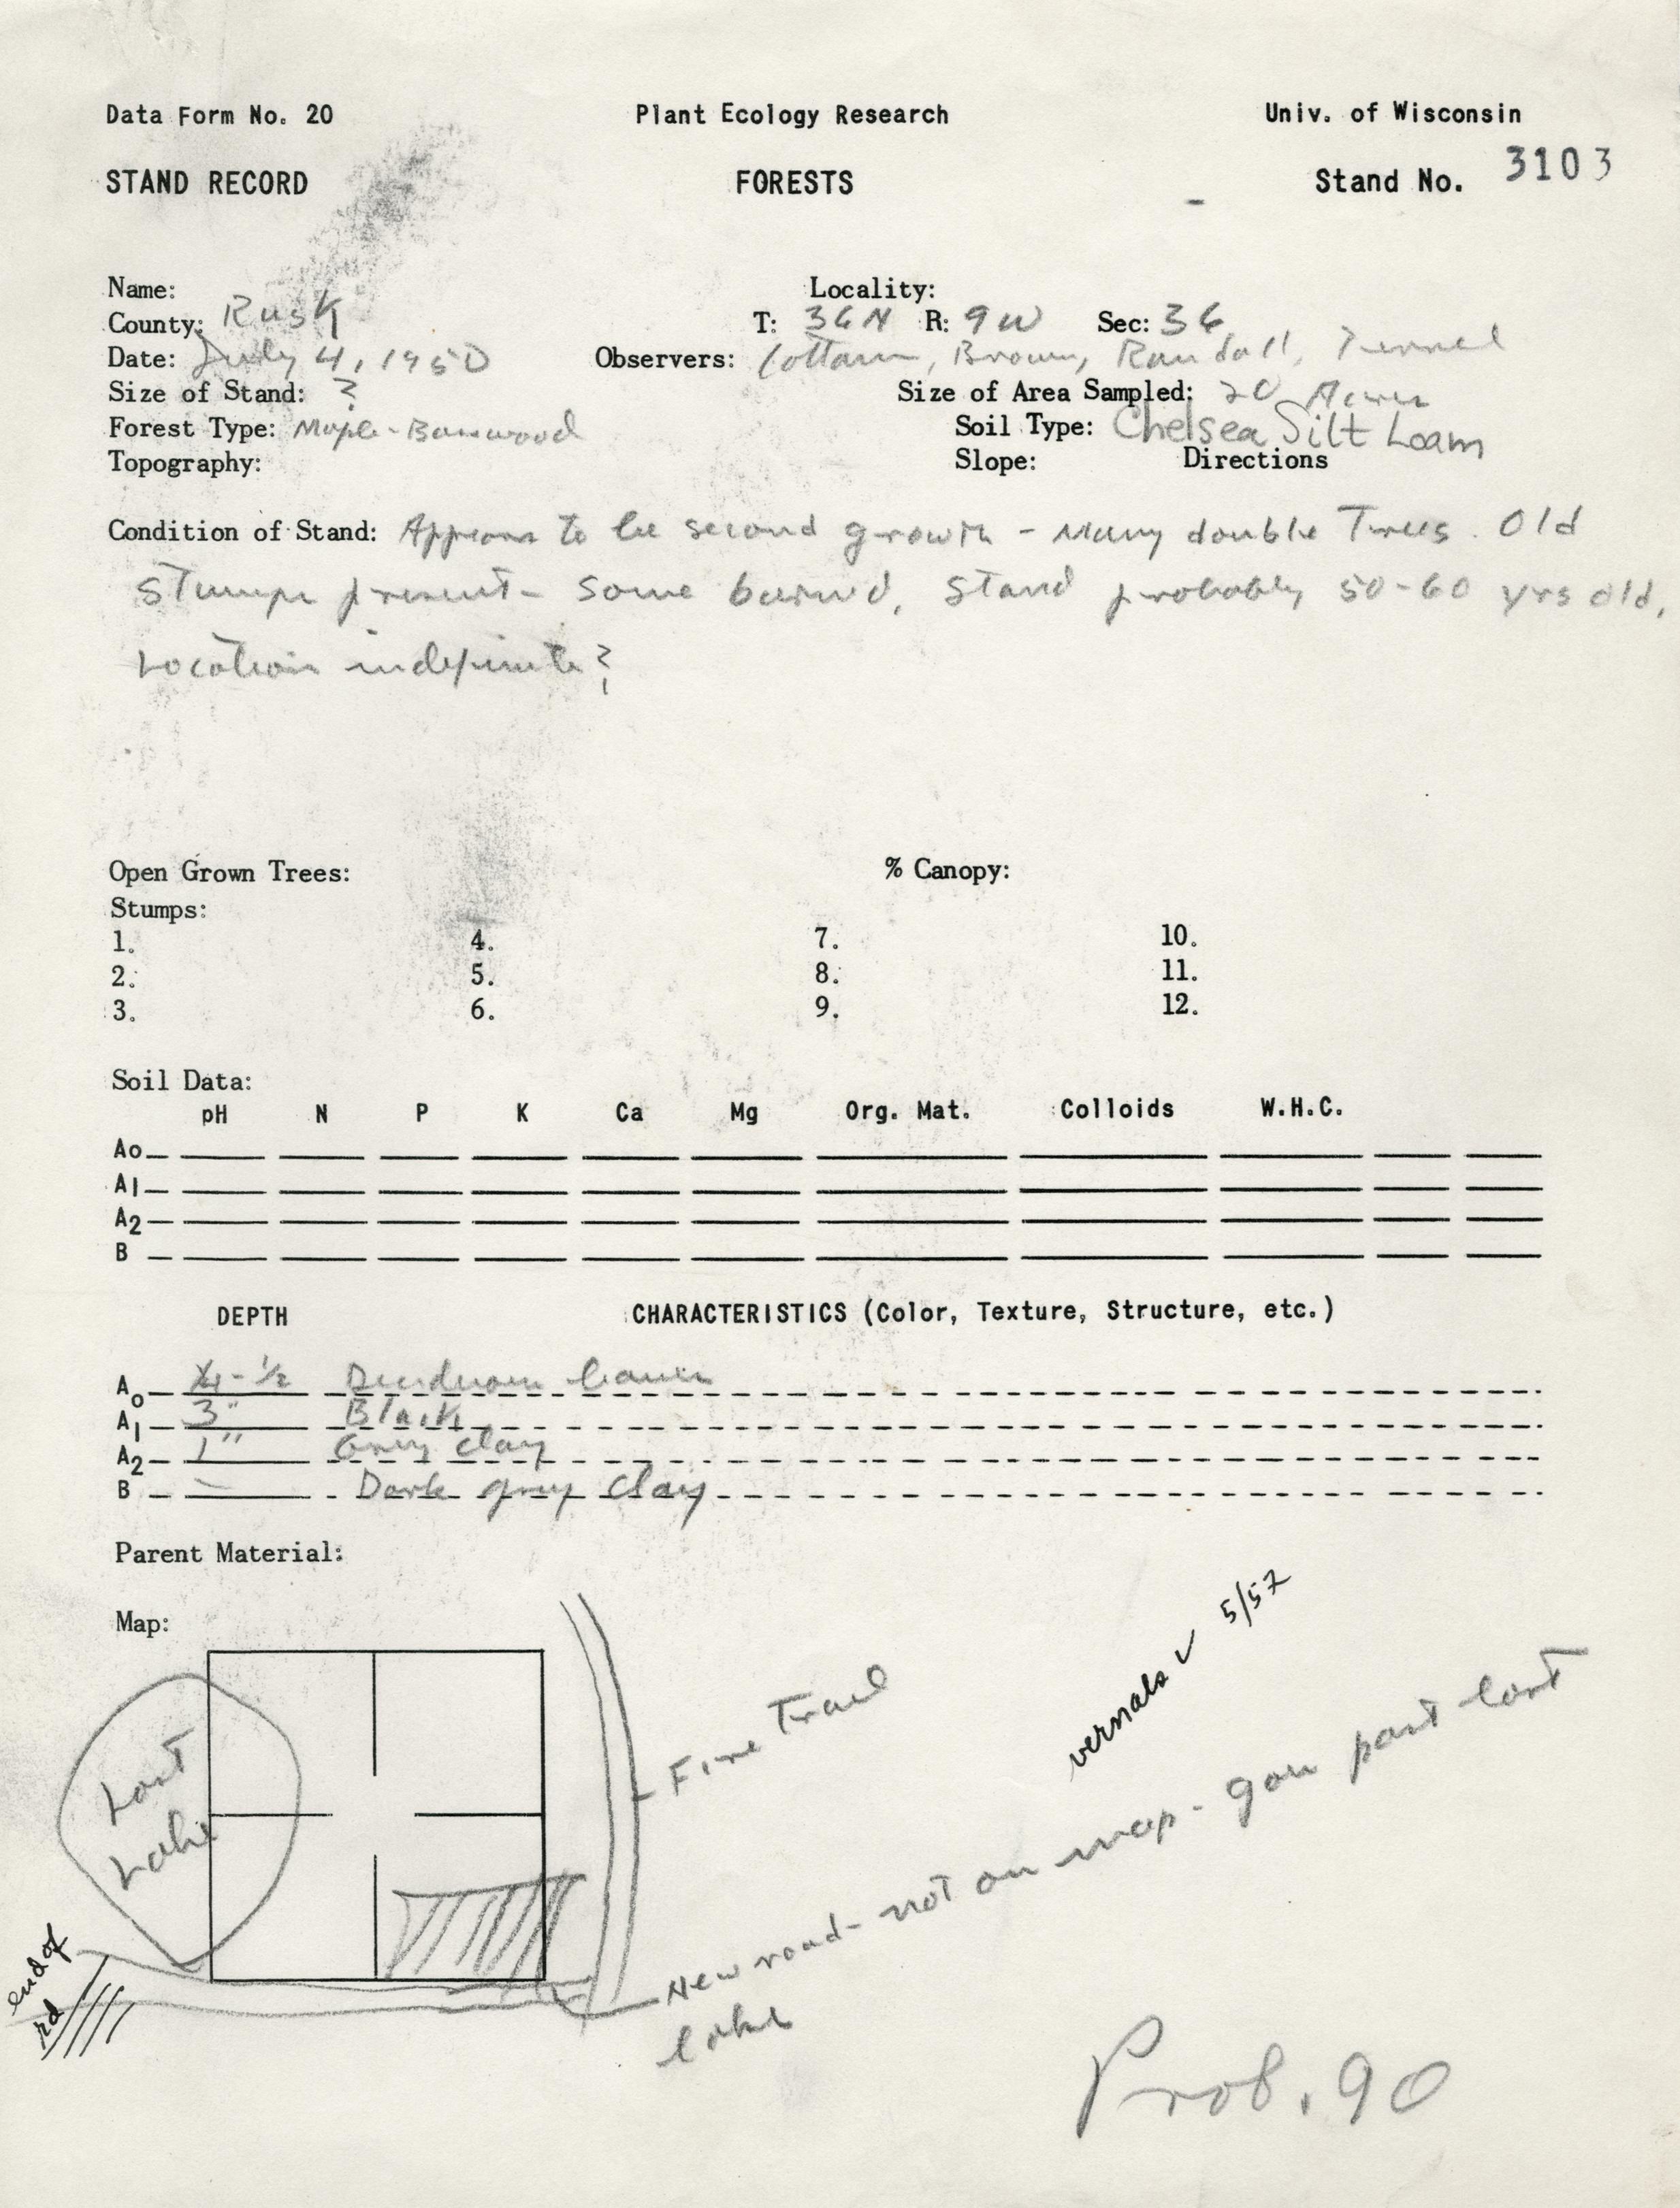 Data Form No. 20 Plant Ecology Research Univ. of Wisconsin
STAND RECORD FORESTS Stand No. 3103
Name: Locality:
County: Rusk T: 36N R: 9W Sec: 36
Date: July 4, 1950 Observers: Cottam, Brown, Randall,
Size of Stand: ? Size of Area Sampled: 20 Acres
Forest Type: Maple-Basswood Soil Type: Chelsea Silt Loam
Topography: Slope: Directions
Condition of Stand: Appears to be second growth - Many double Trees. Old
Stumps present - Some burned. Stand probably 50-60 yrs old.
Location indefinite?
Open Grown Trees: % Canopy:
Stumps:
1. 4. 7. 10.
2. 5. 8. 11.
3. 6. 9. 12.
Soil Data:
pH N P K Ca Mg Org. Mat. Colloids W.H.C.
Ao
A1
A2
B
DEPTH CHARACTERISTICS (Color, Texture, Structure, etc.)
Ao ¼-½ Deciduous leaves
A1 3" Black
A2 1" Grey clay
B - Dark grey clay
Parent Material:
Map:
vernals ✓ 5/57
Lost
Lake
Fire Trail
New road - not on map - goes past lost
lake
end of
rd
Prob. 90